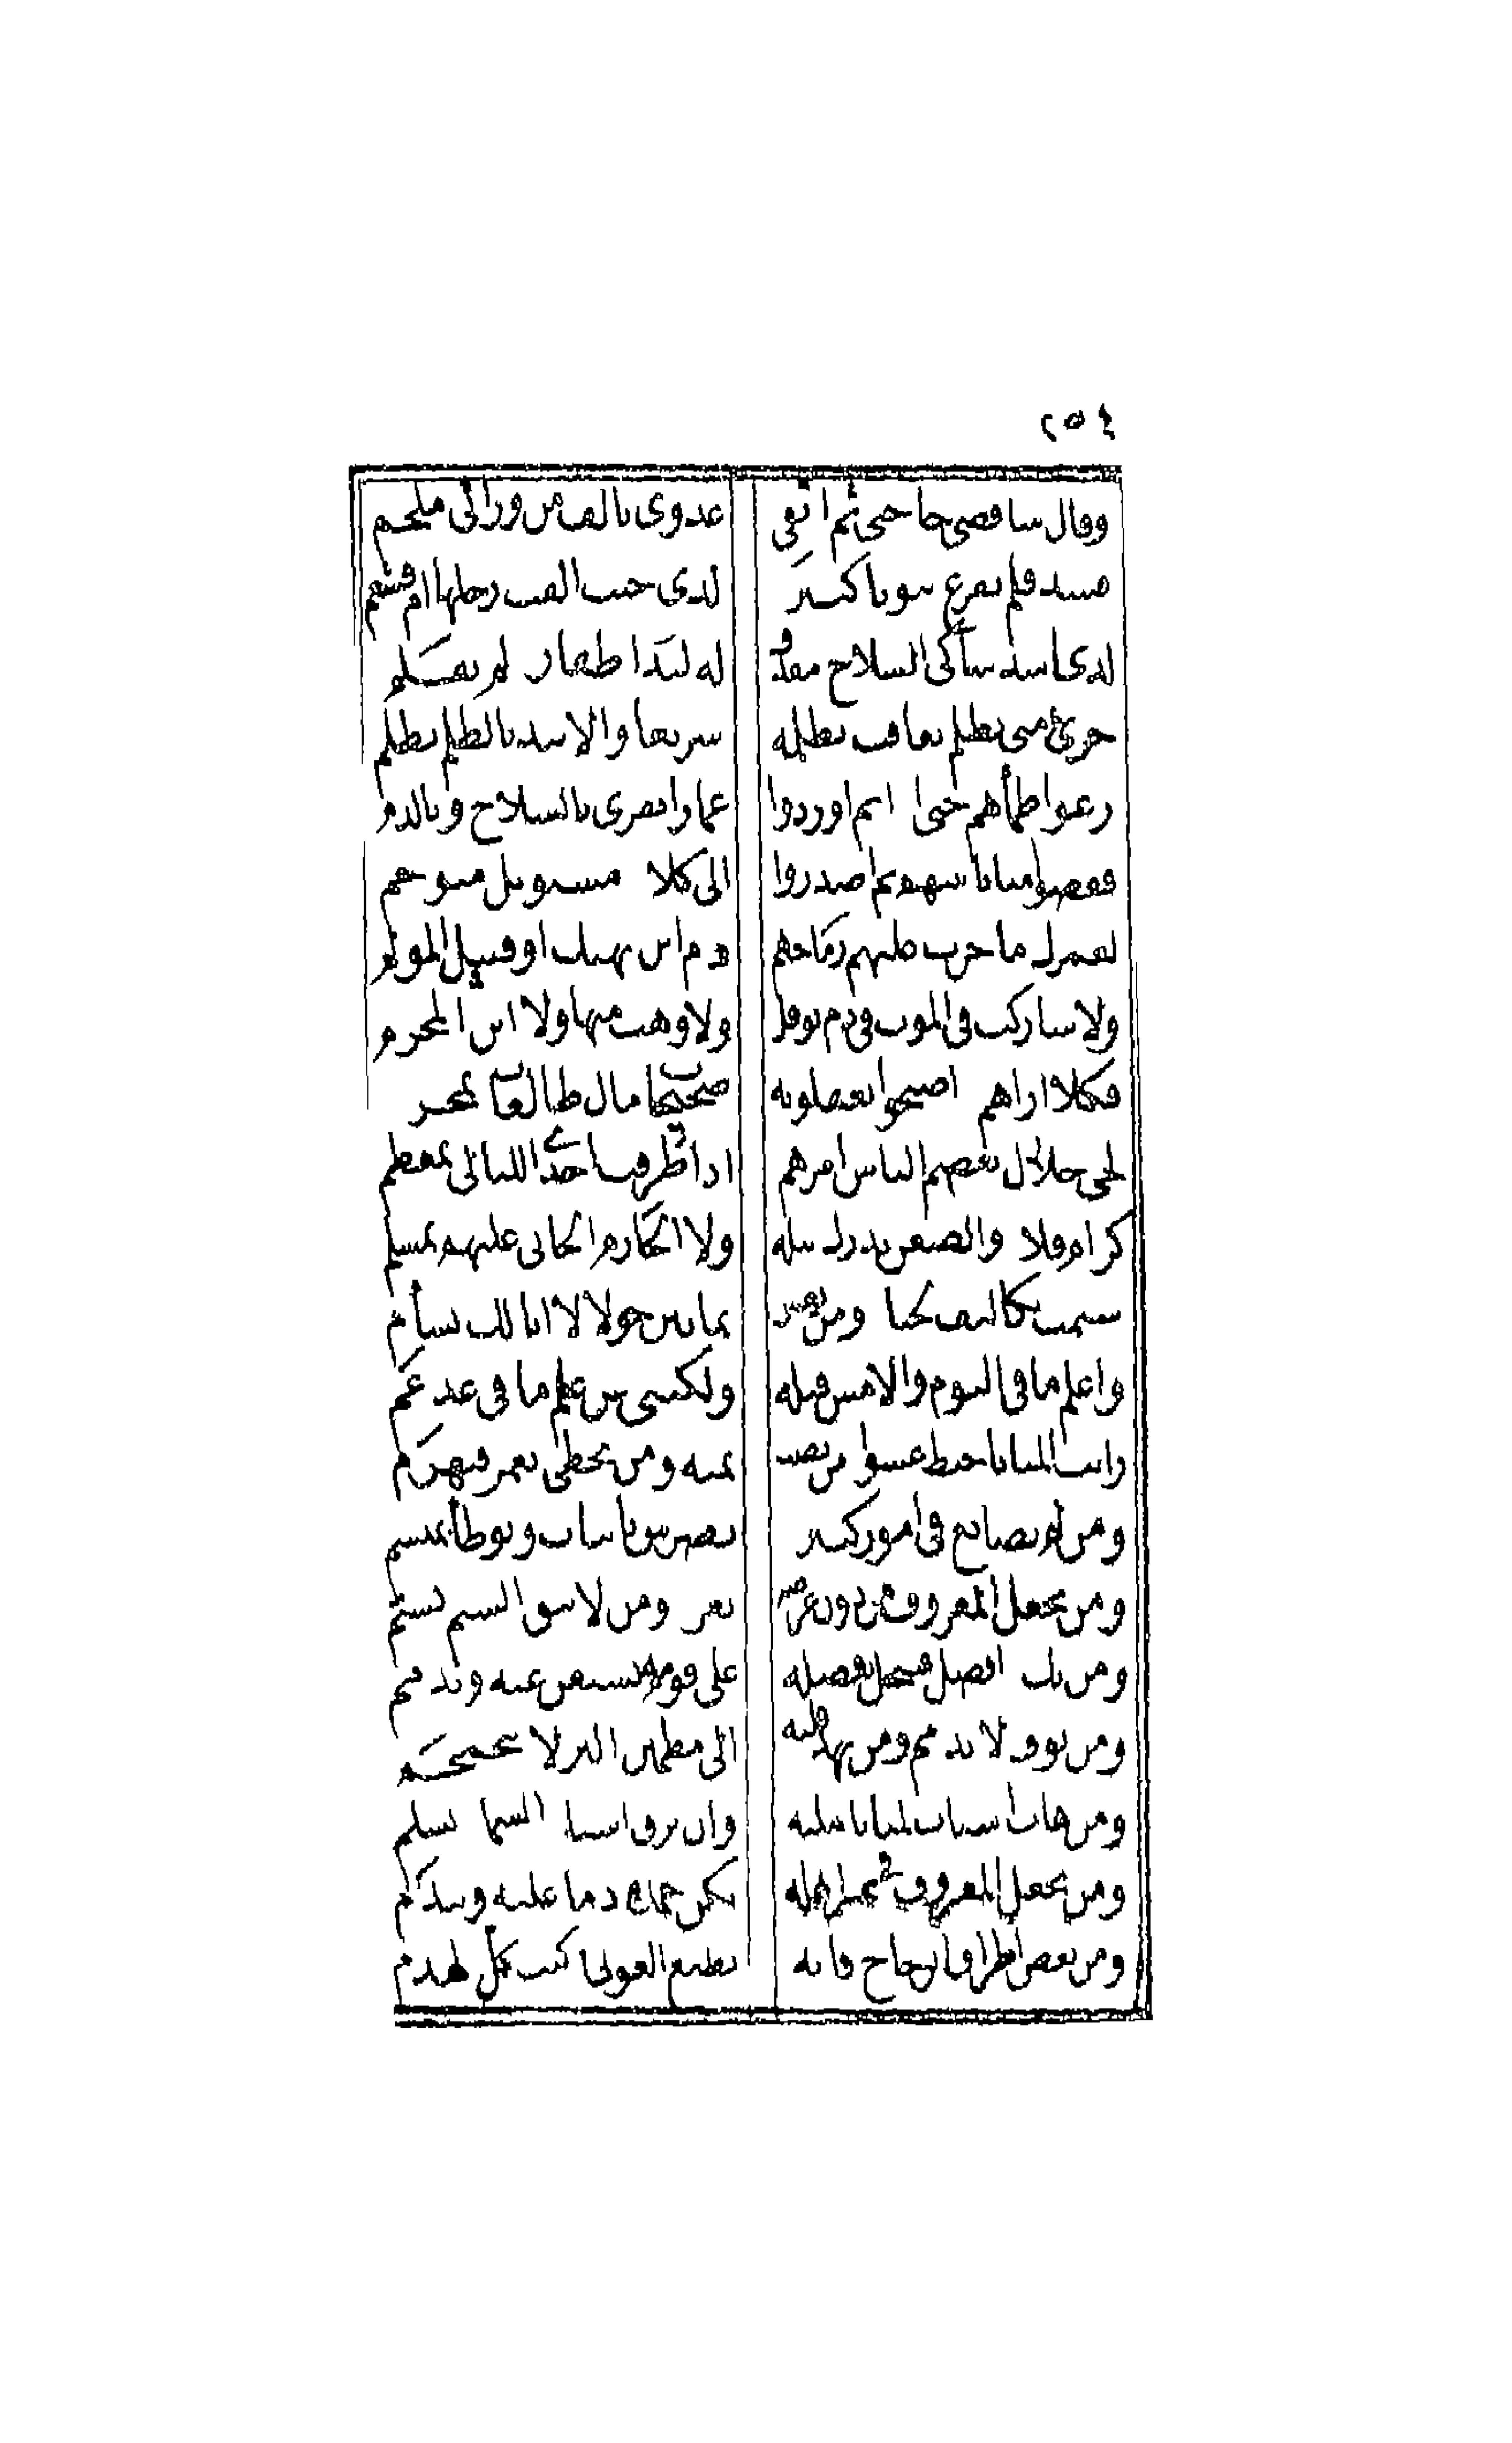 ٢٥٤
وقال ساقضى حاجتى ثم اتقى عدوى بالف من ورائى ملجم
فشد فلم يفزع بيوتا كثيرة لدى حيث القت رحلها ام قشعم
لدى اسد شاكى السلاح مقذف له لبد اظفاره لم تقلم
جرئ متى يظلم يعاقب بظلمه سريعا والا يبد بالظلم يظلم
رعوا ظمأهم حتى اذا تم اوردوا غمارا تفرى بالسلاح وبالدم
فقضوا منايا بينهم ثم اصدروا الى كلا مستوبل متوخم
لعمرك ما جرت عليهم رماحهم دم ابن نهيك او قتيل المثلم
ولا شاركت فى الموت فى دم نوفل ولا وهب منها ولا ابن المخزم
فكلا اراهم اصبحوا يعقلونه صحيحات مال طالعات بمخرم
لحى حلال يعصم الناس امرهم اذا طرقت احدى الليالى بمعظم
كرام فلا ذو الضغن يدرك تبله ولا الجارم الجانى عليهم بمسلم
سئمت تكاليف الحيا ومن يعش ثمانين حولا لا ابا لك يسأم
واعلم ما فى اليوم والامس قبله ولكننى عن علم ما فى غد عم
رايت المنايا خبط عشوا من تصب تمته ومن تخطى يعمر فيهرم
ومن لم يصانع فى امور كثيرة يضرس بانياب ويوطأ بمنسم
ومن يجعل المعروف من دون عرضه يفره ومن لا يتق الشتم يشتم
ومن يك ذا فضل فيبخل بفضله على قومه يستغن عنه ويذمم
ومن يوف لا يذمم ومن يهد قلبه الى مطمئن البر لا يتجمجم
ومن هاب اسباب المنايا ينلنه وان يرق اسباب السما بسلم
ومن يجعل المعروف فى غير اهله يكن حمده ذما عليه ويندم
ومن يعص اطراف الزجاج فانه يطيع العوالى ركبت كل لهذم